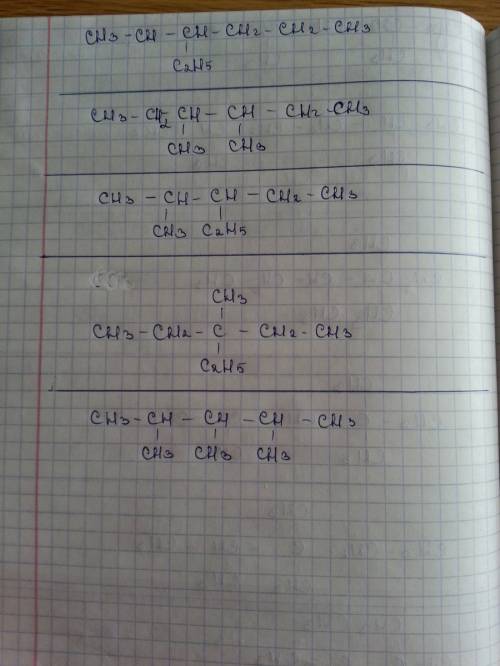 CH3 - CH - CH - CH2 - CH2 - CH3
C2H5
CH3 - CH2 CH - CH - CH2 - CH3
CH3 CH3
CH3 - CH - CH - CH2 - CH3
CH3 C2H5
CH3
CH3 - CH2 - C - CH2 - CH3
C2H5
CH3 - CH - CH - CH - CH3
CH3 CH3 CH3